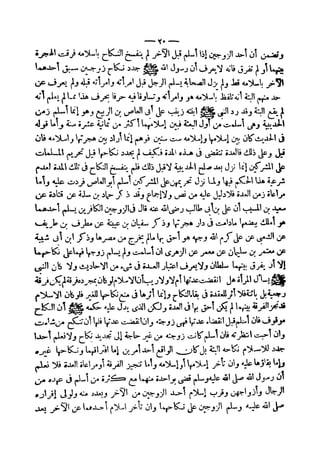 — ٢٠ —
وتضمن أن أحد الزوجين إذا أسلم قبل الآخر لم ينفسخ النكاح باسلامه فرقت الهجرة
بينهما أو لم تفرق فانه لايعرف أن رسول الله ﷺ جدد نكاح زوجين سبق أحدهما
الآخر باسلامه قط ولم يزل الصحابة يسلم الرجل قبل امرأته وامرأته قبله ولم يعرف عن
أحد منهم البتة أنه تلفظ باسلامه هو وامرأته وتساوقا فيه حرفا بحرف هذا مما لم يعلم أنه
لم يقع البتة وقد رد النبي ﷺ ابنته زينب على أبي العاص بن الربيع وهو إنما أسلم زمن
الحديبية وهي أسلمت من أول البعثة فبين إسلامهما أكثر من ثمانية عشرة سنة وأما قوله
في الحديث كان بين إسلامها وإسلامه ست سنين فوهم إنما أراد بين هجرتها وإسلامه فان
قيل وعلى ذلك فالعدة تنقضي في هذه المدة فكيف لم يجدد نكاحها قيل تحريم المسلمات
على المشركين إنما نزل بعد صلح الحديبية لاقبل ذلك فلم ينفسخ النكاح في تلك المدة لعدم
شرعية هذا الحكم فيها ولما نزل تحريمهن على المشركين أسلم أبوالعاص فردت عليه وأما
مراعاة زمن العدة فلا دليل عليه من نص ولا إجماع وقد ذكر حماد بن سلمة عن قتادة عن
سعيد بن المسيب أن علي بن أبي طالب رضي الله عنه قال في الزوجين الكافرين يسلم أحدهما
هو أملك ببضعها مادامت في دار هجرتها وذكر سفيان بن عيينة عن مطرف بن طريف
عن الشعبي عن علي كرم الله وجهه هو أحق بها مالم يخرج من مصرها وذكر ابن أبي شيبة
عن معتمر بن سليمان عن معمر عن الزهري ان أسلمت ولم يسلم زوجها فهما على نكاحهما
إلا أن يفرق بينهما سلطان ولا يعرف اعتبار العدة في شيء من الاحاديث ولا كان النبي
ﷺ يسأل المرأة هل انقضت عدتها أم لا ولا ريب أن الاسلام لو كان بمجرده فرقة لم يكن فرقة
رجعية بل بائنة فلا أثر للعدة في بقاء النكاح وإنما أثرها في منع نكاحها للغير فلو كان الاسلام
قد نجز الفرقة بينهما لم يكن أحق بها في العدة ولكن الذي يدل عليه حكمه ﷺ أن النكاح
موقوف فان أسلم قبل انقضاء عدتها فهي زوجته وان انقضت عدتها فلها أن تنكح من شاءت
وان أحبت انتظرته فان أسلم كانت زوجته من غير حاجة إلى تجديد نكاح ولا نعلم أحدا
جدد للاسلام نكاحه البتة بل كان الواقع أحد أمرين إما افتراقهما ونكاحها غيره
وإما بقاؤها عليه وان تأخر إسلامها أو إسلامه وأما تنجيز الفرقة أو مراعاة العدة فلا نعلم
أن رسول الله صلى الله عليه وسلم قضى بواحدة منهما مع كثرة من أسلم في عهده من
الرجال وأزواجهن وقرب إسلام أحد الزوجين من الآخر وبعده منه ولولا إقراره
صلى الله عليه وسلم الزوجين على نكاحهما وان تأخر اسلام أحدهما عن الآخر بعد